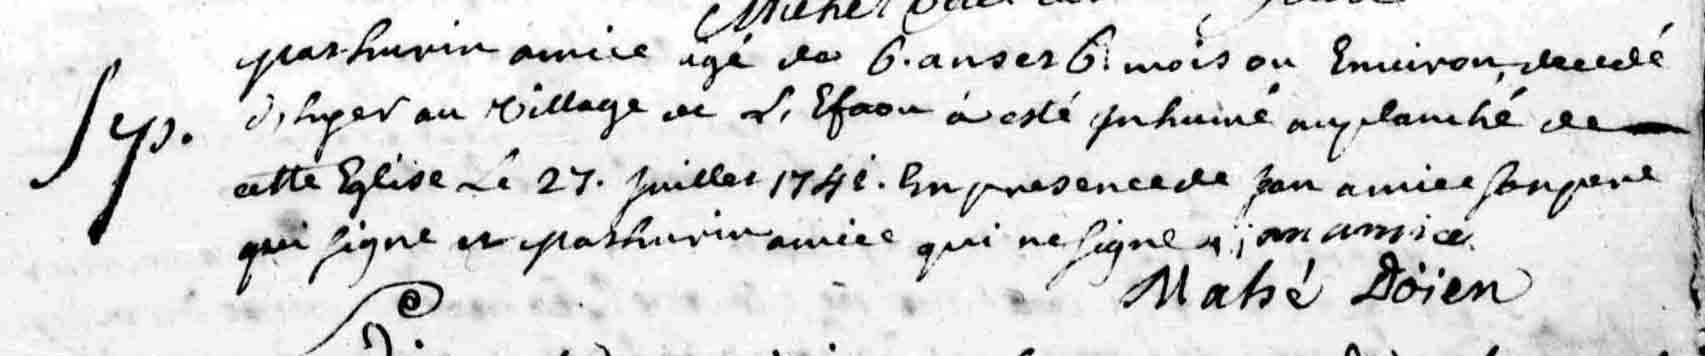 Michel
Mathurin amice agé de 6. ans et 6. mois ou Environ, decedé
Sep. d'hyer au village de L'Efaou a esté inhumé au planché de
cette Eglise Le 27. juillet 1741. En presence de jan amice son pere
qui signe et Mathurin amice qui ne signe jan amice
Mahé Doien